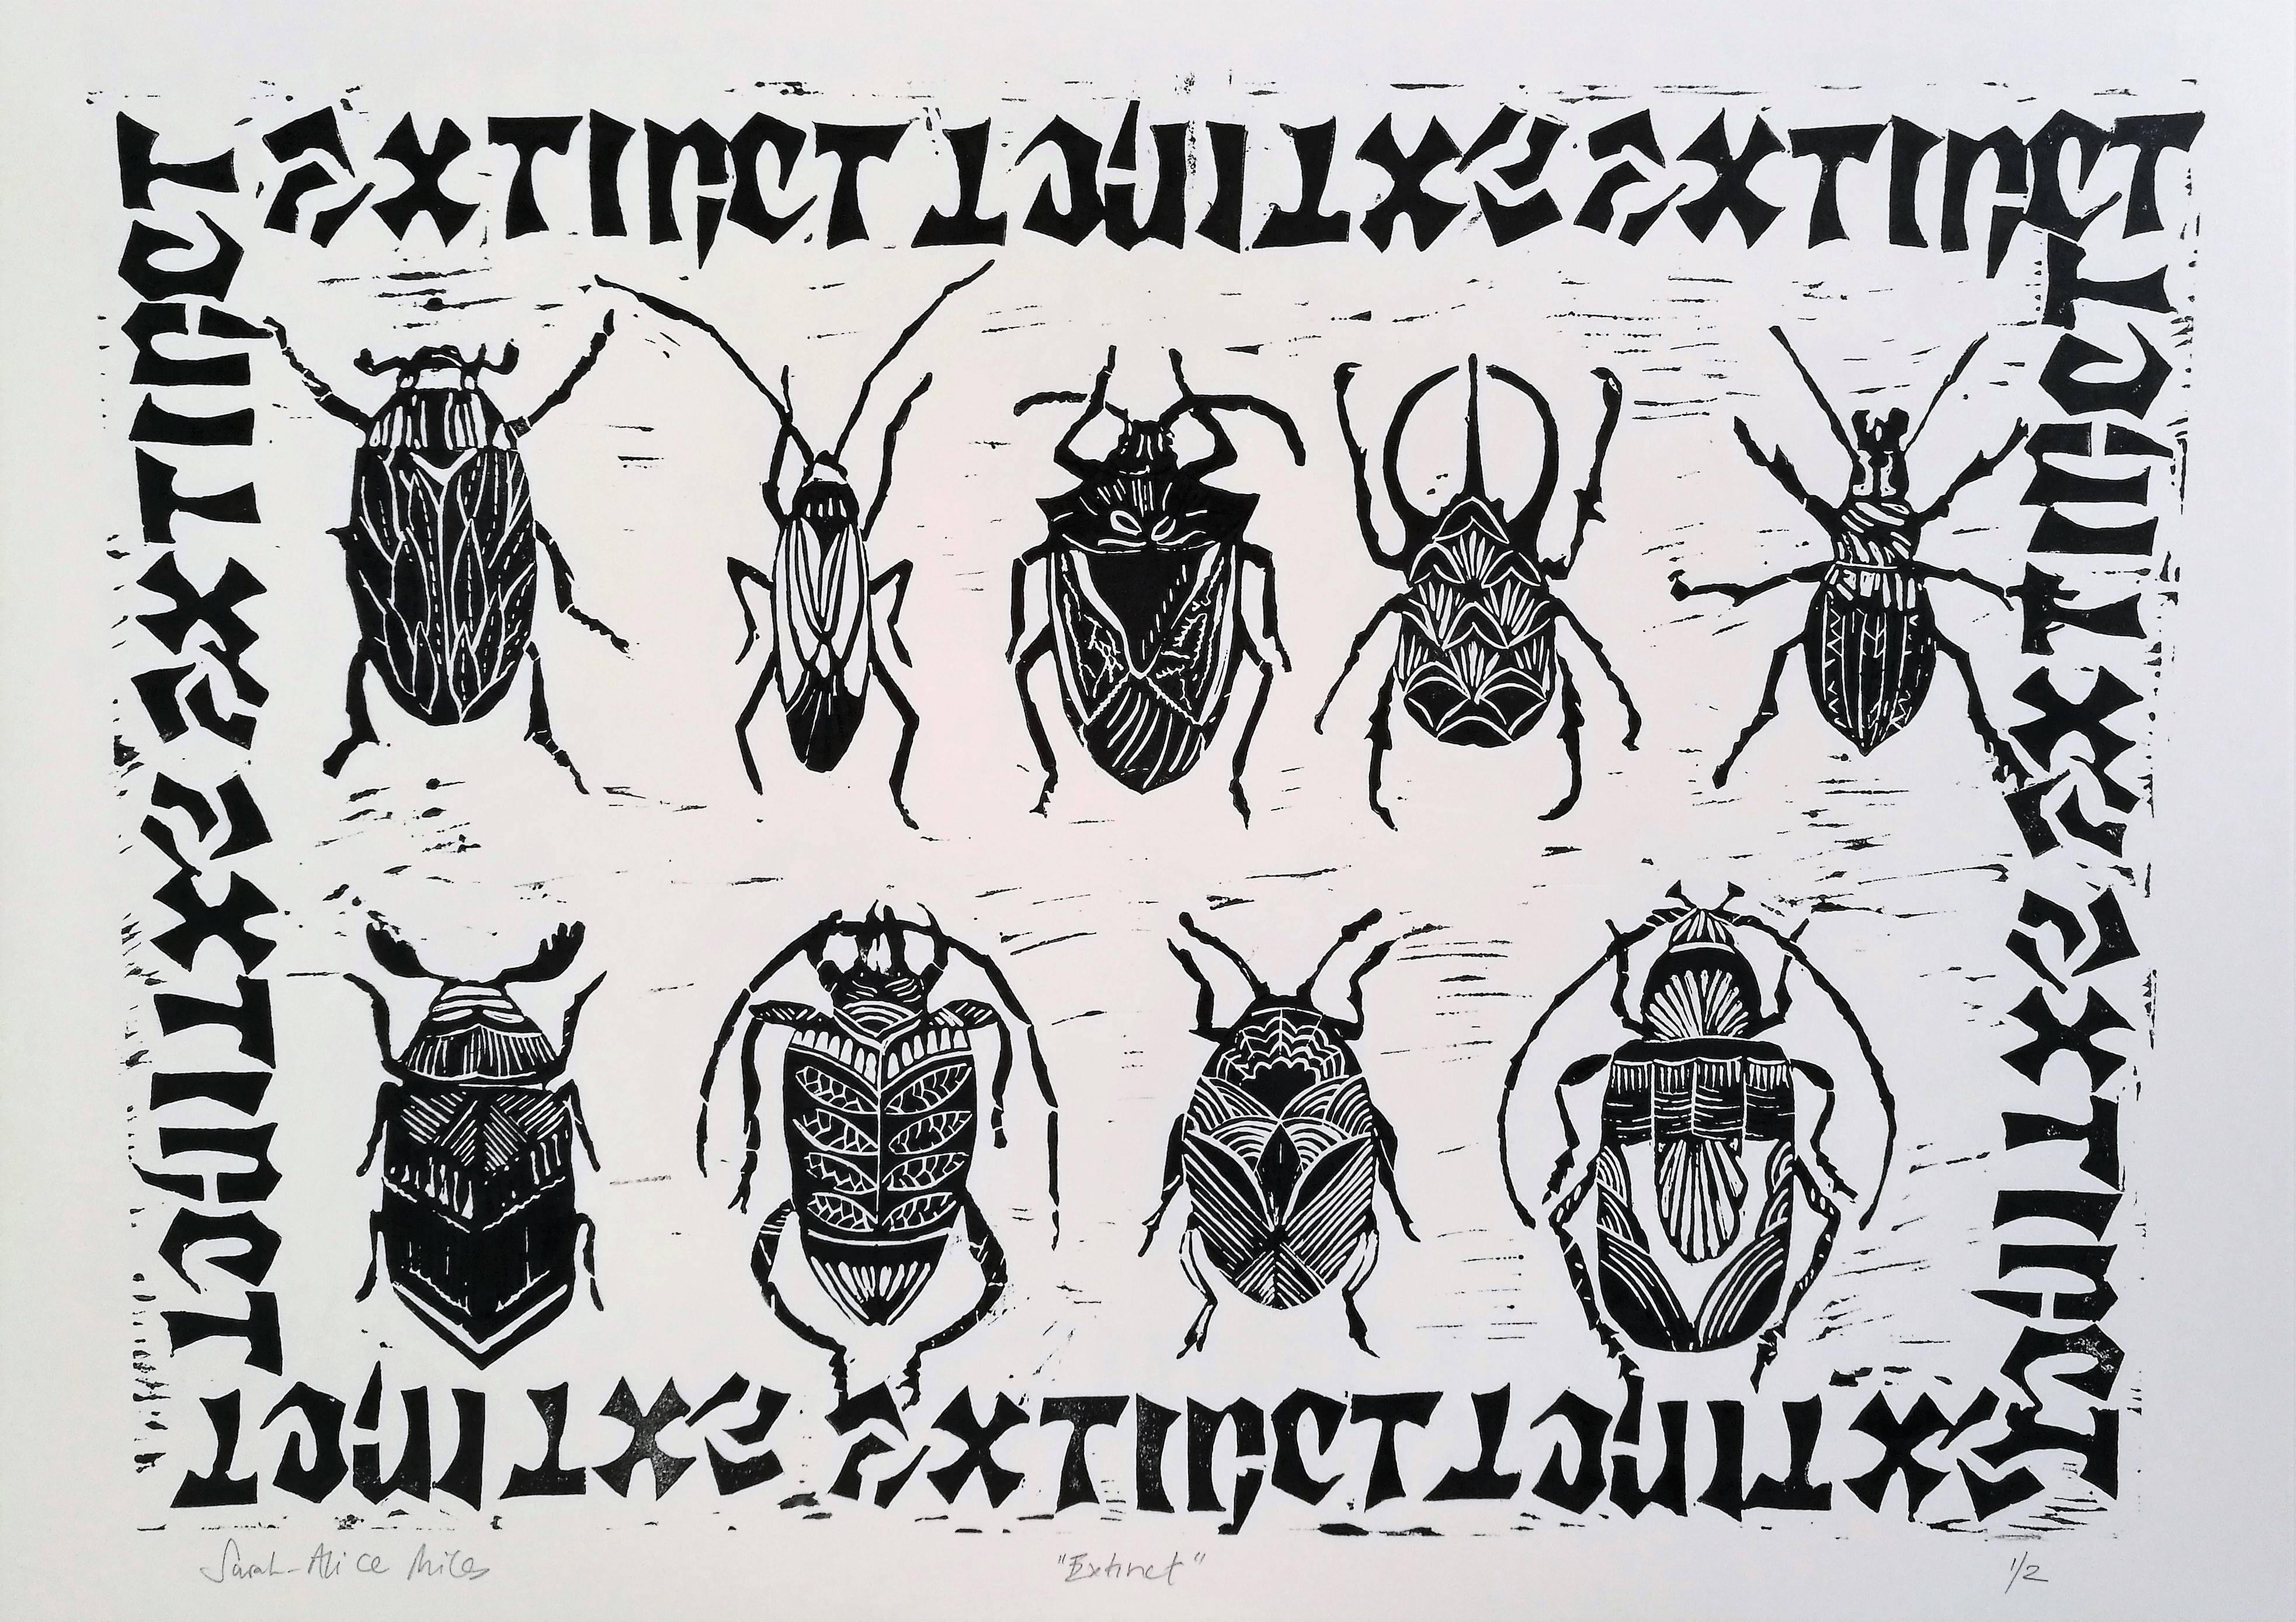 extinct extinct extinct
extinct extinct
extinct extinct
extinct extinct extinct
Sarah-Alice Miles
"Extinct"
1/2